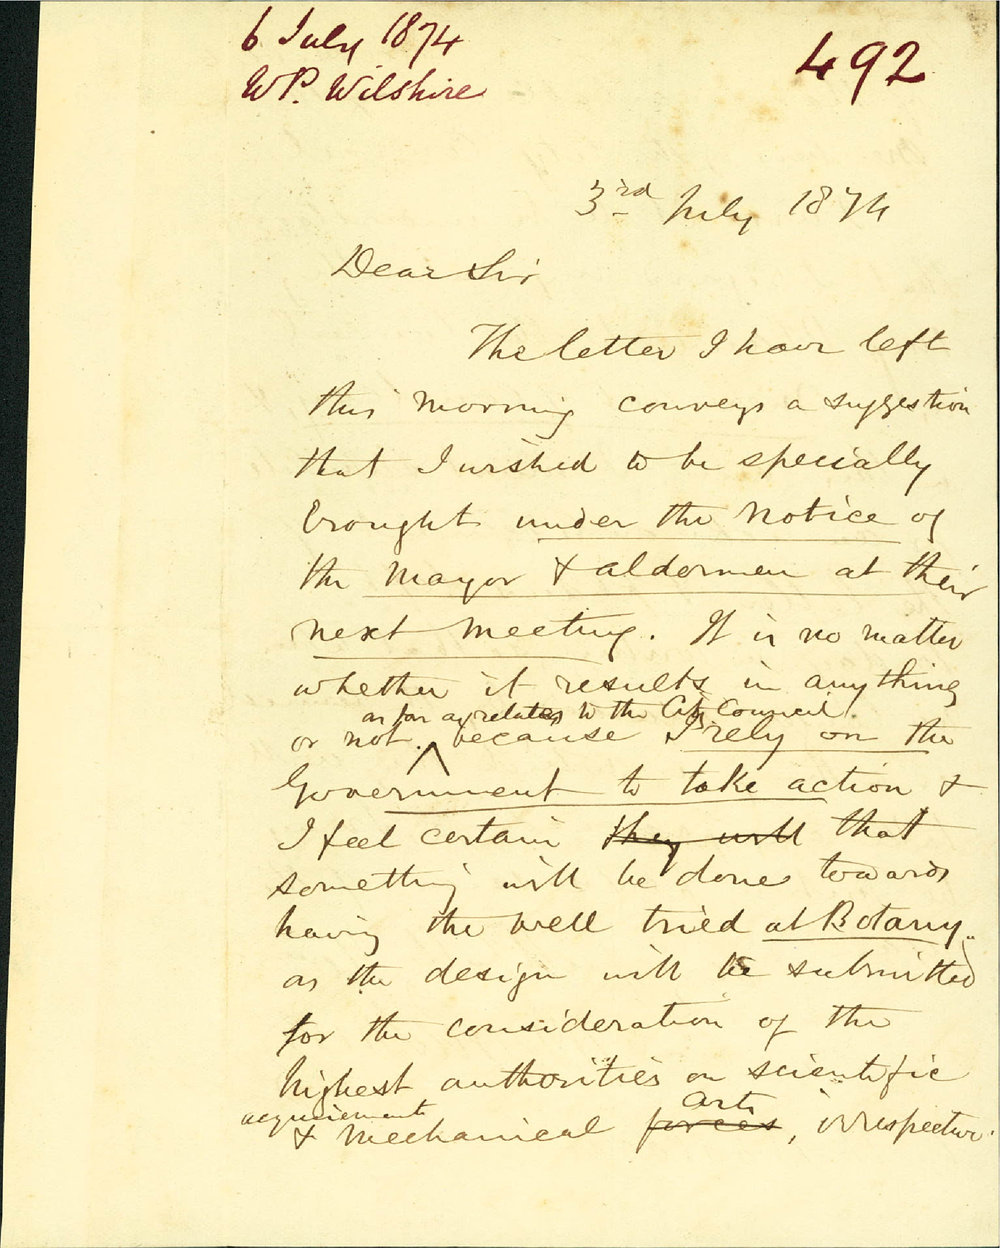 6 July 1874
WP. Wilshire
492
3rd July 1874
Dear Sir
The letter I have left
this morning conveys a suggestion
that I wished to be specially
brought under the notice of
the Mayor & aldermen at their
next meeting. It is no matter
whether it results in anything
as far as relates to the City Council
or not. ^ because I rely on the
Government to take action &
I feel certain they will that
something will be done towards
having the well tried at Botany.
as the design will be submitted
for the consideration of the
highest authorities on scientific
acquirements arts
& mechanical forces, irrespective